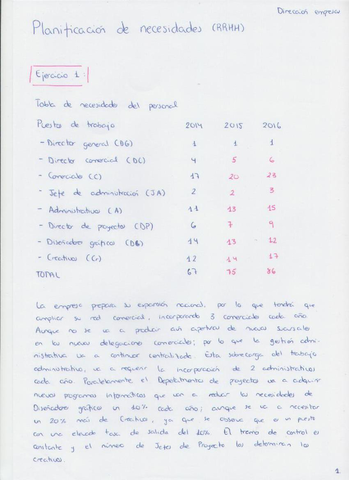 Dirección empresa
Planificación de necesidades (RRHH)
Ejercicio 1:
Tabla de necesidades del personal
Puestos de trabajo 2014 2015 2016
- Director general (DG) 1 1 1
- Director comercial (DC) 4 5 6
- Comerciales (C) 17 20 23
- Jefe de administración (JA) 2 2 3
- Administrativos (A) 11 13 15
- Director de proyectos (DP) 6 7 9
- Diseñadores gráficos (DG) 14 13 12
- Creativos (G) 12 14 17
TOTAL 67 75 86
La empresa prepara su expansión nacional, por lo que tendrá que
ampliar su red comercial, incorporando 3 comerciales cada año.
Aunque no se va a producir aún apertura de nuevas sucursales
en las nuevas delegaciones comerciales; por lo que la gestión admi-
nistrativa va a continuar centralizada. Esta sobrecarga del trabajo
administrativo, va a requerir la incorporación de 2 administrativos
cada año. Paralelamente el Departamento de proyectos va a adquirir
nuevos programas informáticos que van a reducir las necesidades de
Diseñadores gráficos en un 10% cada año; aunque se va a necesitar
un 20% más de Creativos, ya que se observa que es un puesto
con una elevada tasa de salida del 10%. El tramo de control es
constante y el número de Jefes de Proyecto los determinan los
creativos.
1